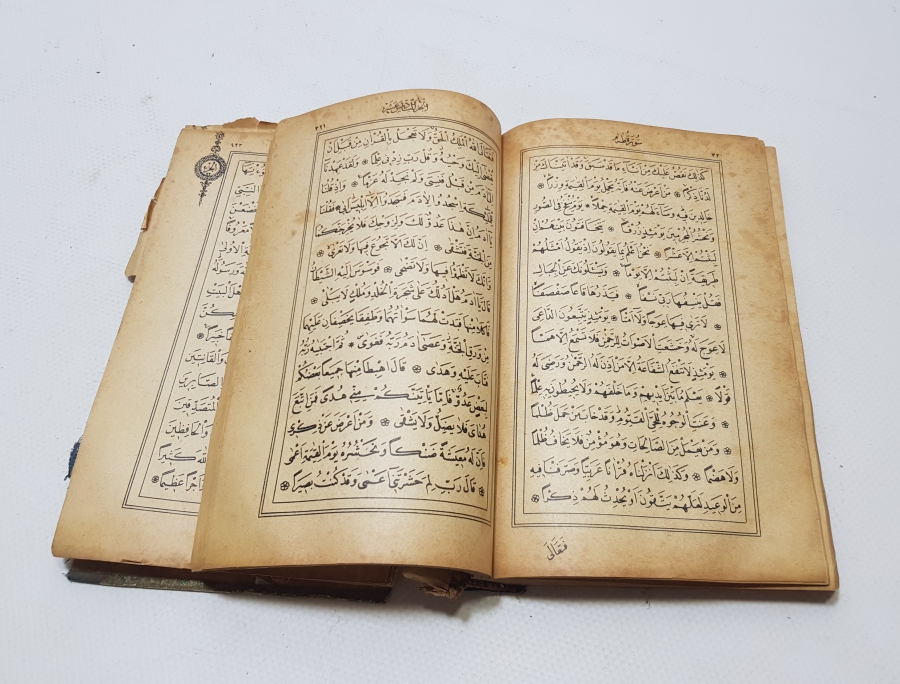 سورة طه
٣٢٠
كَذٰلِكَ نَقُصُّ عَلَيْكَ مِنْ اَنْبَاءِ مَا قَدْ سَبَقَ وَقَدْ اٰتَيْنَاكَ مِنْ
لَدُنَّا ذِكْرًا ۞ مَنْ اَعْرَضَ عَنْهُ فَاِنَّهُ يَحْمِلُ يَوْمَ الْقِيٰمَةِ وِزْرًا ۞
خَالِدِينَ فِيهِ وَسَاءَ لَهُمْ يَوْمَ الْقِيٰمَةِ حِمْلًا ۞ يَوْمَ يُنْفَخُ فِي الصُّورِ
وَنَحْشُرُ الْمُجْرِمِينَ يَوْمَئِذٍ زُرْقًا ۞ يَتَخَافَتُونَ بَيْنَهُمْ اِنْ
لَبِثْتُمْ اِلَّا عَشْرًا ۞ نَحْنُ اَعْلَمُ بِمَا يَقُولُونَ اِذْ يَقُولُ اَمْثَلُهُمْ
طَرِيقَةً اِنْ لَبِثْتُمْ اِلَّا يَوْمًا ۞ وَيَسْئَلُونَكَ عَنِ الْجِبَالِ
فَقُلْ يَنْسِفُهَا رَبِّي نَسْفًا ۞ فَيَذَرُهَا قَاعًا صَفْصَفًا
۞ لَا تَرٰى فِيهَا عِوَجًا وَلَا اَمْتًا ۞ يَوْمَئِذٍ يَتَّبِعُونَ الدَّاعِيَ
لَا عِوَجَ لَهُ وَخَشَعَتِ الْاَصْوَاتُ لِلرَّحْمٰنِ فَلَا تَسْمَعُ اِلَّا هَمْسًا
۞ يَوْمَئِذٍ لَا تَنْفَعُ الشَّفَاعَةُ اِلَّا مَنْ اَذِنَ لَهُ الرَّحْمٰنُ وَرَضِيَ لَهُ
قَوْلًا ۞ يَعْلَمُ مَا بَيْنَ اَيْدِيهِمْ وَمَا خَلْفَهُمْ وَلَا يُحِيطُونَ بِهِ عِلْمًا
۞ وَعَنَتِ الْوُجُوهُ لِلْحَيِّ الْقَيُّومِ وَقَدْ خَابَ مَنْ حَمَلَ ظُلْمًا
۞ وَمَنْ يَعْمَلْ مِنَ الصَّالِحَاتِ وَهُوَ مُؤْمِنٌ فَلَا يَخَافُ ظُلْمًا
وَلَا هَضْمًا ۞ وَكَذٰلِكَ اَنْزَلْنَاهُ قُرْاٰنًا عَرَبِيًّا وَصَرَّفْنَا فِيهِ
مِنَ الْوَعِيدِ لَعَلَّهُمْ يَتَّقُونَ اَوْ يُحْدِثُ لَهُمْ ذِكْرًا ۞
فَتَعَالَى
٣٢١
فَتَعَالَى اللّٰهُ الْمَلِكُ الْحَقُّ وَلَا تَعْجَلْ بِالْقُرْاٰنِ مِنْ قَبْلِ اَنْ
يُقْضٰى اِلَيْكَ وَحْيُهُ وَقُلْ رَبِّ زِدْنِي عِلْمًا ۞ وَلَقَدْ عَهِدْنَا
اِلٰى اٰدَمَ مِنْ قَبْلُ فَنَسِيَ وَلَمْ نَجِدْ لَهُ عَزْمًا ۞ وَاِذْ قُلْنَا
لِلْمَلٰئِكَةِ اسْجُدُوا لِاٰدَمَ فَسَجَدُوا اِلَّا اِبْلِيسَ اَبٰى ۞ فَقُلْنَا
يَا اٰدَمُ اِنَّ هٰذَا عَدُوٌّ لَكَ وَلِزَوْجِكَ فَلَا يُخْرِجَنَّكُمَا
مِنَ الْجَنَّةِ فَتَشْقٰى ۞ اِنَّ لَكَ اَلَّا تَجُوعَ فِيهَا وَلَا تَعْرٰى ۞
وَاَنَّكَ لَا تَظْمَؤُا فِيهَا وَلَا تَضْحٰى ۞ فَوَسْوَسَ اِلَيْهِ الشَّيْطَانُ
قَالَ يَا اٰدَمُ هَلْ اَدُلُّكَ عَلٰى شَجَرَةِ الْخُلْدِ وَمُلْكٍ لَا يَبْلٰى ۞
فَاَكَلَا مِنْهَا فَبَدَتْ لَهُمَا سَوْاٰتُهُمَا وَطَفِقَا يَخْصِفَانِ عَلَيْهِمَا
مِنْ وَرَقِ الْجَنَّةِ وَعَصٰى اٰدَمُ رَبَّهُ فَغَوٰى ۞ ثُمَّ اجْتَبٰيهُ رَبُّهُ
فَتَابَ عَلَيْهِ وَهَدٰى ۞ قَالَ اهْبِطَا مِنْهَا جَمِيعًا بَعْضُكُمْ
لِبَعْضٍ عَدُوٌّ فَاِمَّا يَأْتِيَنَّكُمْ مِنِّي هُدًى فَمَنِ اتَّبَعَ
هُدَايَ فَلَا يَضِلُّ وَلَا يَشْقٰى ۞ وَمَنْ اَعْرَضَ عَنْ ذِكْرِي
فَاِنَّ لَهُ مَعِيشَةً ضَنْكًا وَنَحْشُرُهُ يَوْمَ الْقِيٰمَةِ اَعْمٰى
۞ قَالَ رَبِّ لِمَ حَشَرْتَنِي اَعْمٰى وَقَدْ كُنْتُ بَصِيرًا ۞
النَّبِيِّ
الْاُولٰى
وَرَسُولَهُ
اَهْلَ الْبَيْتِ
خَبِيرًا ۞
وَالْقَانِتِينَ
وَالصَّابِرِينَ
وَالْمُتَصَدِّقِينَ
وَالْحَافِظِينَ
اللّٰهَ كَثِيرًا
وَاَجْرًا عَظِيمًا